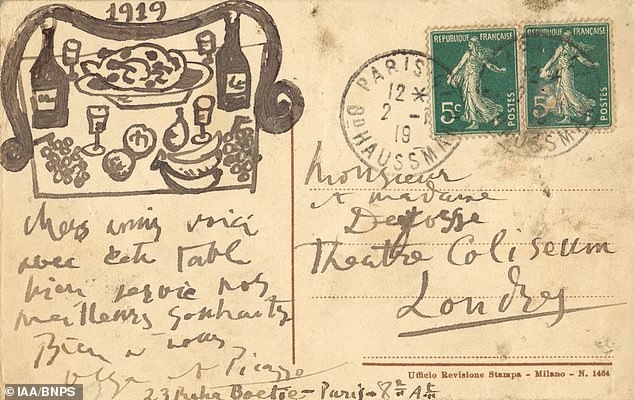 1919
chers amis voici
avec cette table
bien servie nos
meilleurs souhaits
Bien a vous
Olga et Picasso
23 Rue La Boetie - Paris - 8
REPUBLIQUE FRANÇAISE
5c
POSTES
REPUBLIQUE FRANÇAISE
5c
POSTES
PARIS
12 *
2 -
19
Bd HAUSSMA
Monsieur
et madame
Theatre Coliseum
Londres
Ufficio Revisione Stampa - Milano - N. 1464
© IAA/BNPS